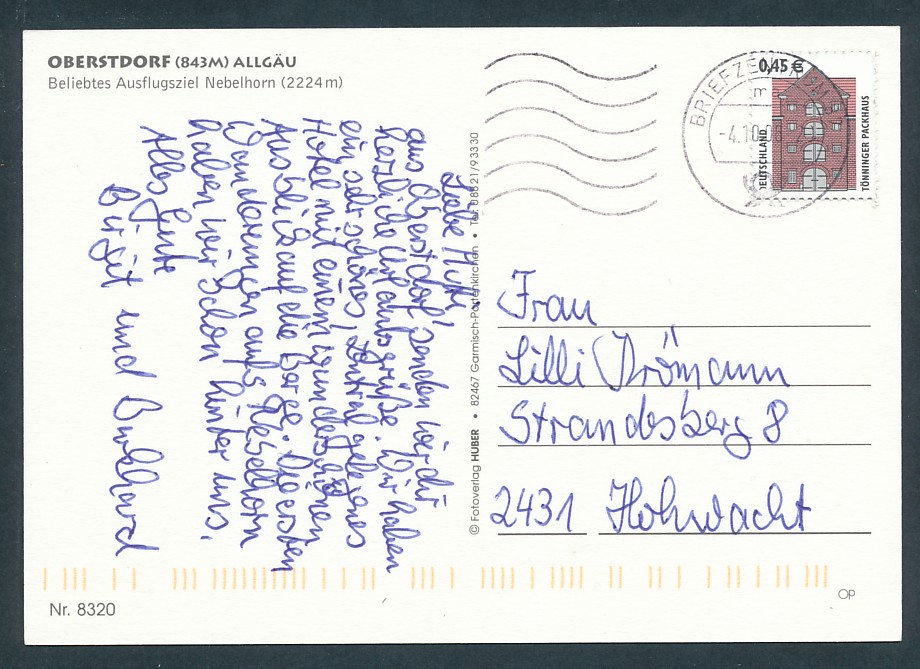 OBERSTDORF (843M) ALLGÄU
Beliebtes Ausflugsziel Nebelhorn (2224m)
Liebe Mutti,
aus Oberstdorf senden wir dir
herzliche Urlaubsgrüße. Wir haben
ein sehr schönes, zentral gelegenes
Hotel mit einem wunderschönen
Ausblick auf die Berge. Die ersten
Wanderungen aufs Nebelhorn
haben wir schon hinter uns.
Alles Gute
Birgit und Burkhard
© Fotoverlag HUBER • 82467 Garmisch-Partenkirchen • Tel. 08821/93330
BRIEFZENTRUM
-4.10.0
0,45 €
DEUTSCHLAND
TÖNNINGER PACKHAUS
Frau
Lilli Krömann
Strandesberg 8
2431 Hohwacht
Nr. 8320
OP